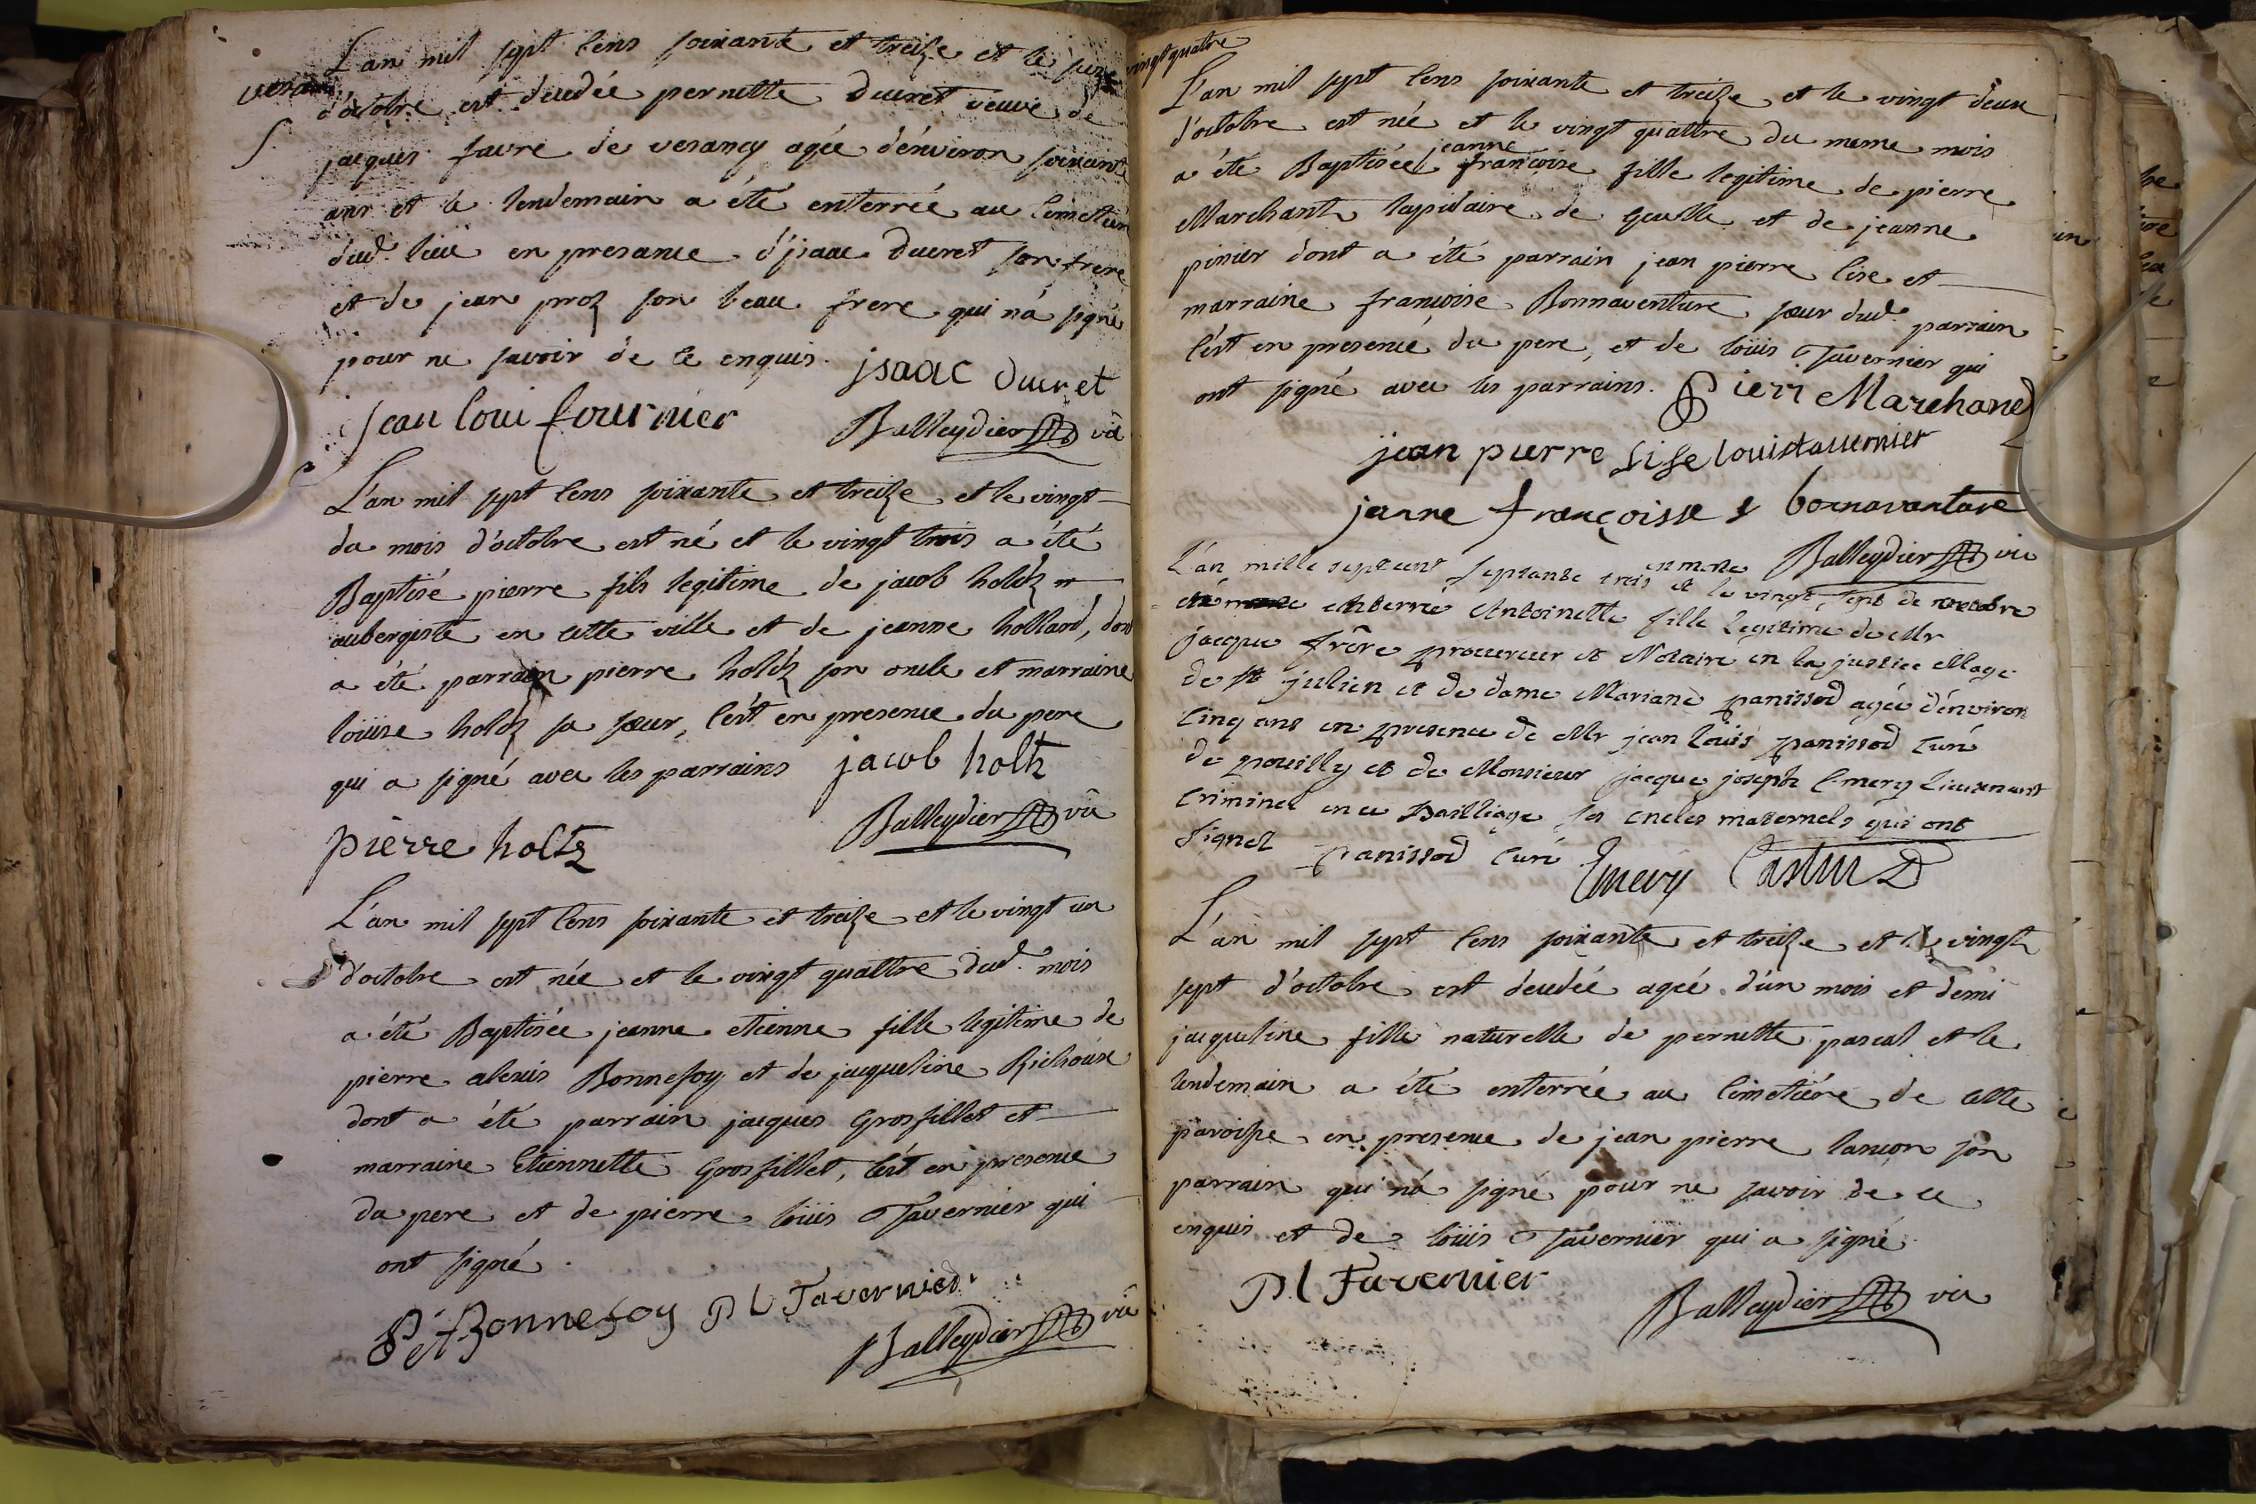 L'an mil sept cens soixante et treize et le seize
d'octobre est décédée pernette ducret veuve de
S. jacques favre de vesancy agée d'environ soixante
ans et le lendemain a été enterrée au
dud. lieu en presance d'jsaac ducret son frere
et de jean proz son beau frere qui n'a signé
pour ne savoir de ce enquis. jsaac ducret
jean loui fournier Balleydier vic
L'an mil sept cens soixante et treize et le vingt
du mois d'octobre est né et le vingt trois a été
Baptisé pierre fils legitime de jacob holdz
aubergiste en cette ville et de jeanne hollard, dont
a été parrain pierre holdz son oncle et marraine
loüise holdz sa sœur, c'est en presence du pere
qui a signé avec les parrains jacob holtz
pierre holtz Balleydier vic
L'an mil sept cens soixante et treize et le vingt un
d'octobre est née et le vingt quattre dud. mois
a été Baptisée jeanne etienne fille legitime de
pierre alexis Bonnefoy et de jacqueline
dont a été parrain jacques Grosfillet et
marraine Etiennette Grosfillet, c'est en presence
du pere et de pierre loüis Tavernier qui
ont signé.
P A Bonnefoy P L Tavernier
Balleydier vic
vingt quatre
L'an mil sept cens soixante et treize et le vingt deux
d'octobre est née et le vingt quattre du meme mois
jeanne
a été Baptisée françoise fille legitime de pierre
Marchant lapidaire de et de jeanne
pinier dont a été parrain jean pierre lise et
marraine françoise Bonnaventure sœur dud. parrain
c'est en presence du pere, et de loüis Tavernier qui
ont signé avec les parrains. Pierr Marchand
jean pierre Lise louis tavernier
janne françoisse bornavantare
Balleydier vic
L'an mille septcent septante trois et le vingt sept de octobre
enterré Antoinette fille legitime de Mr
jacque frère procureur et Notaire en la justice Mage
de st julien et de dame Mariane panissod agée d'environ
cinq ans en presence de Mr jean Louis panissod curé
de pouilly et de Monsieur jacque joseph Emery lieutenant
criminel en ce Bailliage ses oncles maternels qui ont
signez panissod curé Emery Castin
L'an mil sept cens soixante et treize et le vingt
sept d'octobre est décédée agée d'un mois et demi
jacqueline fille naturelle de pernette pascal et le
lendemain a été enterrée au cimetiére de cette
paroisse en presence de jean pierre lançon son
parrain qui n'a signé pour ne savoir de ce
enquis et de loüis Tavernier qui a signé
P L Tavernier
Balleydier vic